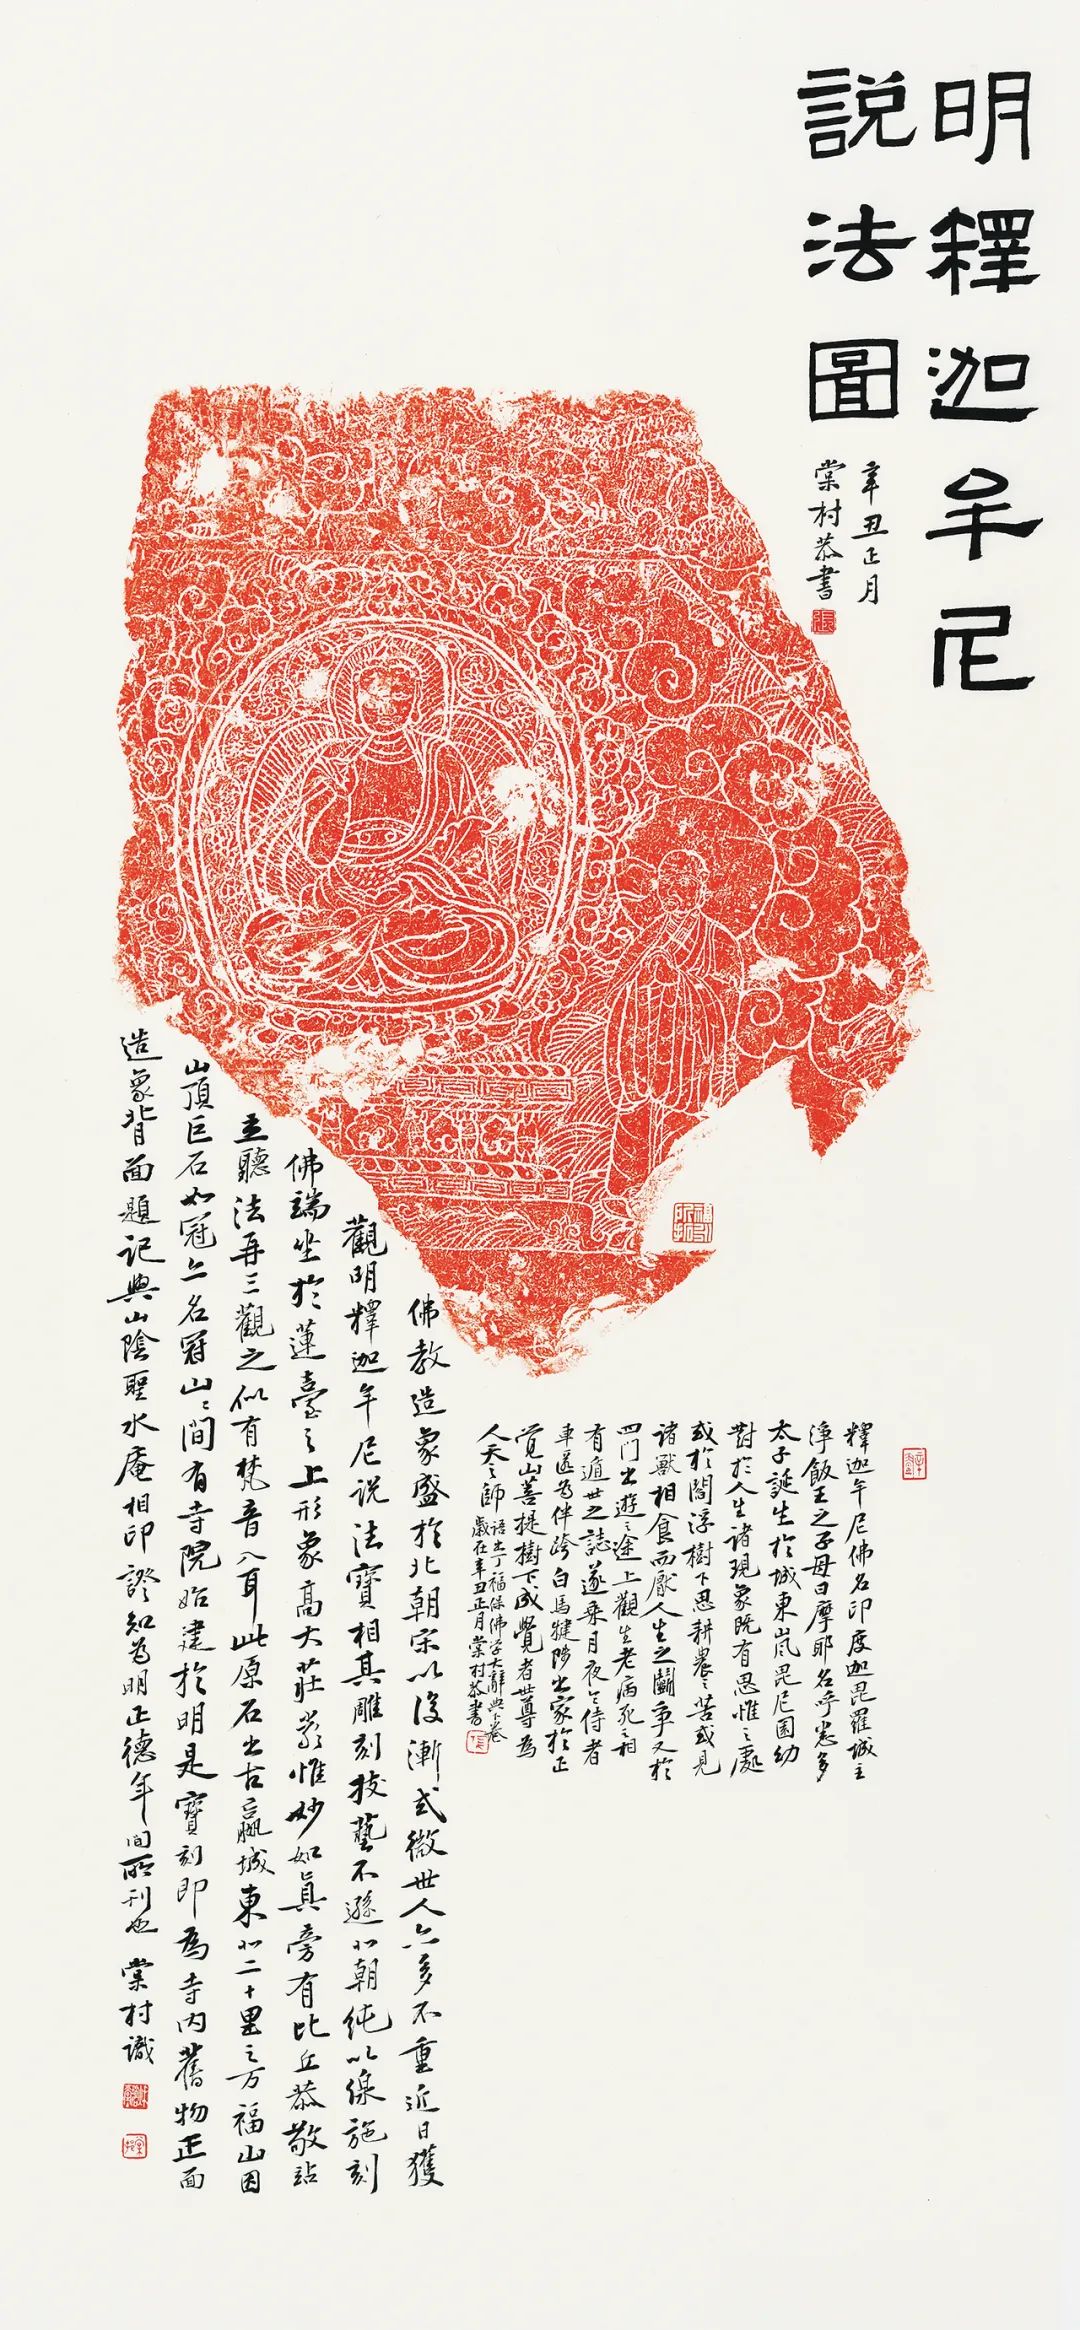 明釋迦牟尼
說法圖
辛丑正月
棠村恭書
釋迦牟尼佛名印度迦毘羅城主
淨飯王之子母曰摩耶名乎悉多
太子誕生於城東嵐毘尼園幼
對於人生諸現象既有思惟之處
或於閻浮樹下思耕農之苦或見
諸獸相食而厭人生之鬪爭又於
四門出遊之途上觀生老病死之相
有遁世之誌遂乘月夜令侍者
車匿為伴跨白馬犍陟出家於正
覺山菩提樹下成覺者世尊為
人天之師
語出丁福保佛学大辭典下卷
歲在辛丑正月棠村恭書
佛教造象盛於北朝宋以後漸式微世人亦多不重近日獲
觀明釋迦牟尼说法寶相其雕刻技藝不遜北朝純以線施刻
佛端坐於蓮臺之上形象高大莊嚴惟妙如真旁有比丘恭敬站
立聽法再三觀之似有梵音入耳此原石出古嬴城東北二十里之方福山因
山頂巨石如冠亦名冠山山間有寺院始建於明是寶刻即為寺内舊物正面
造象背面題记與山陰聖水庵相印證知為明正德年间所刊也 棠村識